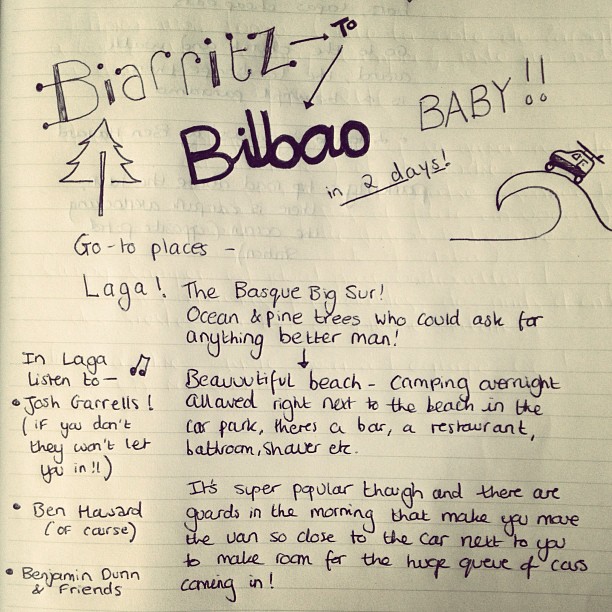 Biarritz → To
Bilbao
BABY!!
in 2 days!
Go-to places -
Laga! The Basque Big Sur!
Ocean & pine trees who could ask for
anything better man!
Beauuutiful beach - camping overnight
allowed right next to the beach in the
car park, theres a bar, a restaurant,
bathroom, shower etc.
It's super popular though and there are
guards in the morning that make you move
the van so close to the car next to you
to make room for the huge queue of cars
coming in!
In Laga
listen to -
• Josh Garrells!
(if you don't
they won't let
you in!!)
• Ben Howard
(of course)
• Benjamin Dunn
& Friends